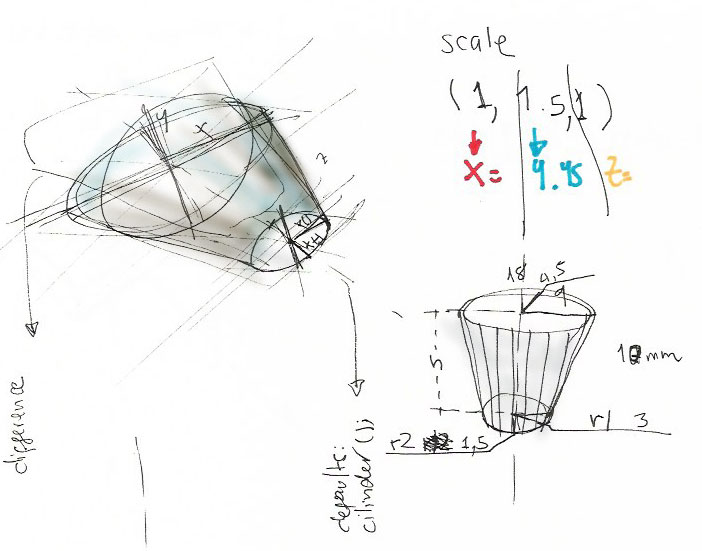 scale
(1, 1.5, 1)
x= 9.45 z=
y
x
z
18 4,5
9
5
10mm
r1 3
r2 1,5
difference
defaults:
cilinder ();